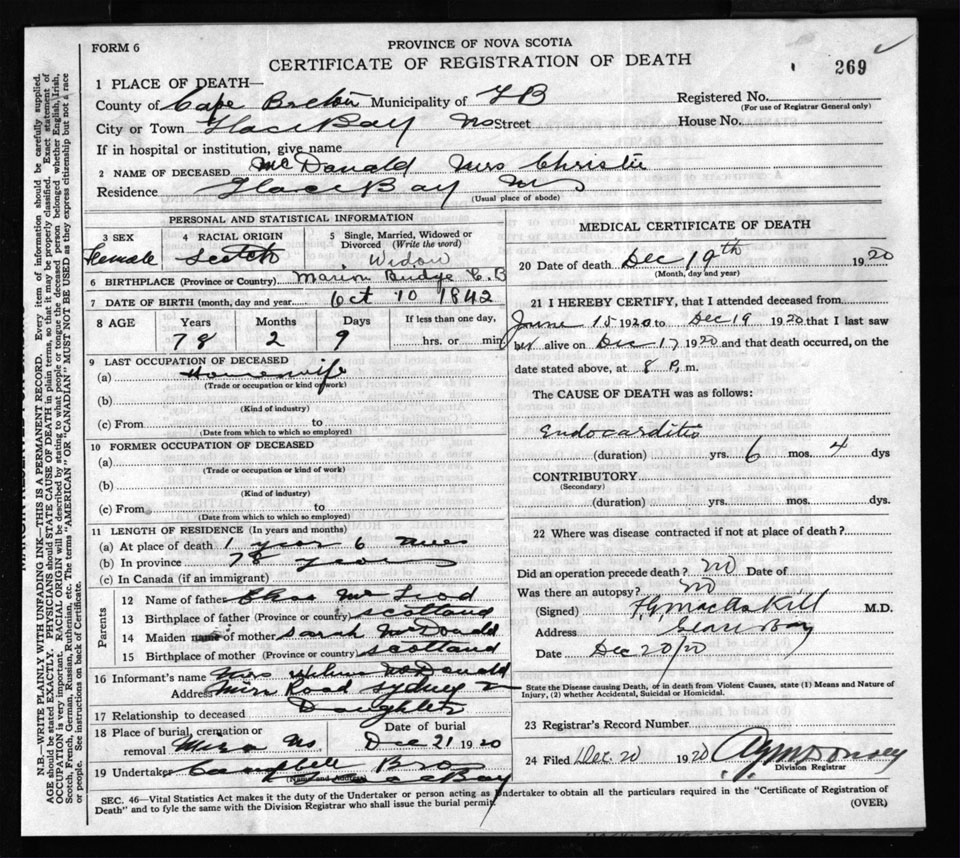 FORM 6
PROVINCE OF NOVA SCOTIA
CERTIFICATE OF REGISTRATION OF DEATH
269
1 PLACE OF DEATH—
County of Cape Breton Municipality of GB
Registered No.
(For use of Registrar General only)
City or Town Glace Bay NS Street House No.
If in hospital or institution, give name
2 NAME OF DECEASED McDonald Mrs Christie
Residence Glace Bay NS
(Usual place of abode)
PERSONAL AND STATISTICAL INFORMATION
3 SEX
Female
4 RACIAL ORIGIN
Scotch
5 Single, Married, Widowed or
Divorced (Write the word)
Widow
6 BIRTHPLACE (Province or Country) Marion Bridge C.B
7 DATE OF BIRTH (month, day and year) Oct 10 1842
8 AGE Years Months Days If less than one day,
78 2 9 hrs. or min.
9 LAST OCCUPATION OF DECEASED
(a) Housewife
(Trade or occupation or kind of work)
(b)
(Kind of industry)
(c) From to
(Date from which to which so employed)
10 FORMER OCCUPATION OF DECEASED
(a)
(Trade or occupation or kind of work)
(b)
(Kind of industry)
(c) From to
(Date from which to which so employed)
11 LENGTH OF RESIDENCE (In years and months)
(a) At place of death 1 year 6 mos
(b) In province 78 years
(c) In Canada (if an immigrant)
Parents
12 Name of father McLeod
13 Birthplace of father (Province or country) Scotland
14 Maiden name of mother Sarah McDonald
15 Birthplace of mother (Province or country) Scotland
16 Informant's name Mrs McDonald
Address Mira Road Sydney
17 Relationship to deceased Daughter
18 Place of burial, cremation or
removal Mira NS
Date of burial
Dec 21 1920
19 Undertaker Campbell Bros
(Name and Address)
Glace Bay
MEDICAL CERTIFICATE OF DEATH
20 Date of death Dec 19th 1920
(Month, day and year)
21 I HEREBY CERTIFY, that I attended deceased from
June 15 1920 to Dec 19 1920 that I last saw
her alive on Dec 17 1920 and that death occurred, on the
date stated above, at 8 P.m.
The CAUSE OF DEATH was as follows:
Endocarditis
(duration) yrs. 6 mos. 4 dys
CONTRIBUTORY
(Secondary)
(duration) yrs. mos. dys.
22 Where was disease contracted if not at place of death?
Did an operation precede death? NO Date of
Was there an autopsy? NO
(Signed) MacAskill M.D.
Address Glace Bay
Date Dec 20/20
State the Disease causing Death, or in death from Violent Causes, state (1) Means and Nature of
Injury, (2) whether Accidental, Suicidal or Homicidal.
23 Registrar's Record Number
24 Filed Dec. 20 1920
Division Registrar
SEC. 46—Vital Statistics Act makes it the duty of the Undertaker or person acting as Undertaker to obtain all the particulars required in the "Certificate of Registration of
Death" and to fyle the same with the Division Registrar who shall issue the burial permit.
(OVER)
N.B.—WRITE PLAINLY WITH UNFADING INK—THIS IS A PERMANENT RECORD. Every item of information should be carefully supplied.
AGE should be stated EXACTLY. PHYSICIANS should STATE CAUSE OF DEATH in plain terms, so that it may be properly classified. Exact statement of
OCCUPATION is very important. RACIAL ORIGIN will be described by stating to what people or tongue the deceased person belonged whether English, Irish,
Scotch, French, German, Russian, Ruthenian, etc. The terms "AMERICAN" OR "CANADIAN" MUST NOT BE USED as they express citizenship but not a race
or people. See instructions on back of Certificate.